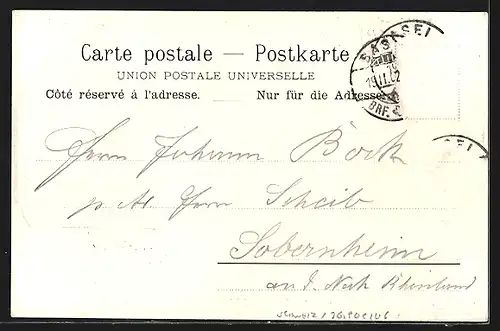 Carte postale — Postkarte
UNION POSTALE UNIVERSELLE
Côté réservé à l'adresse. Nur für die Adresse.
BASEL
19.II.02
BRF.
Herrn Johann Böck
p. Ad. Herrn Scheib
Sobernheim
an d. Nahe Rheinland